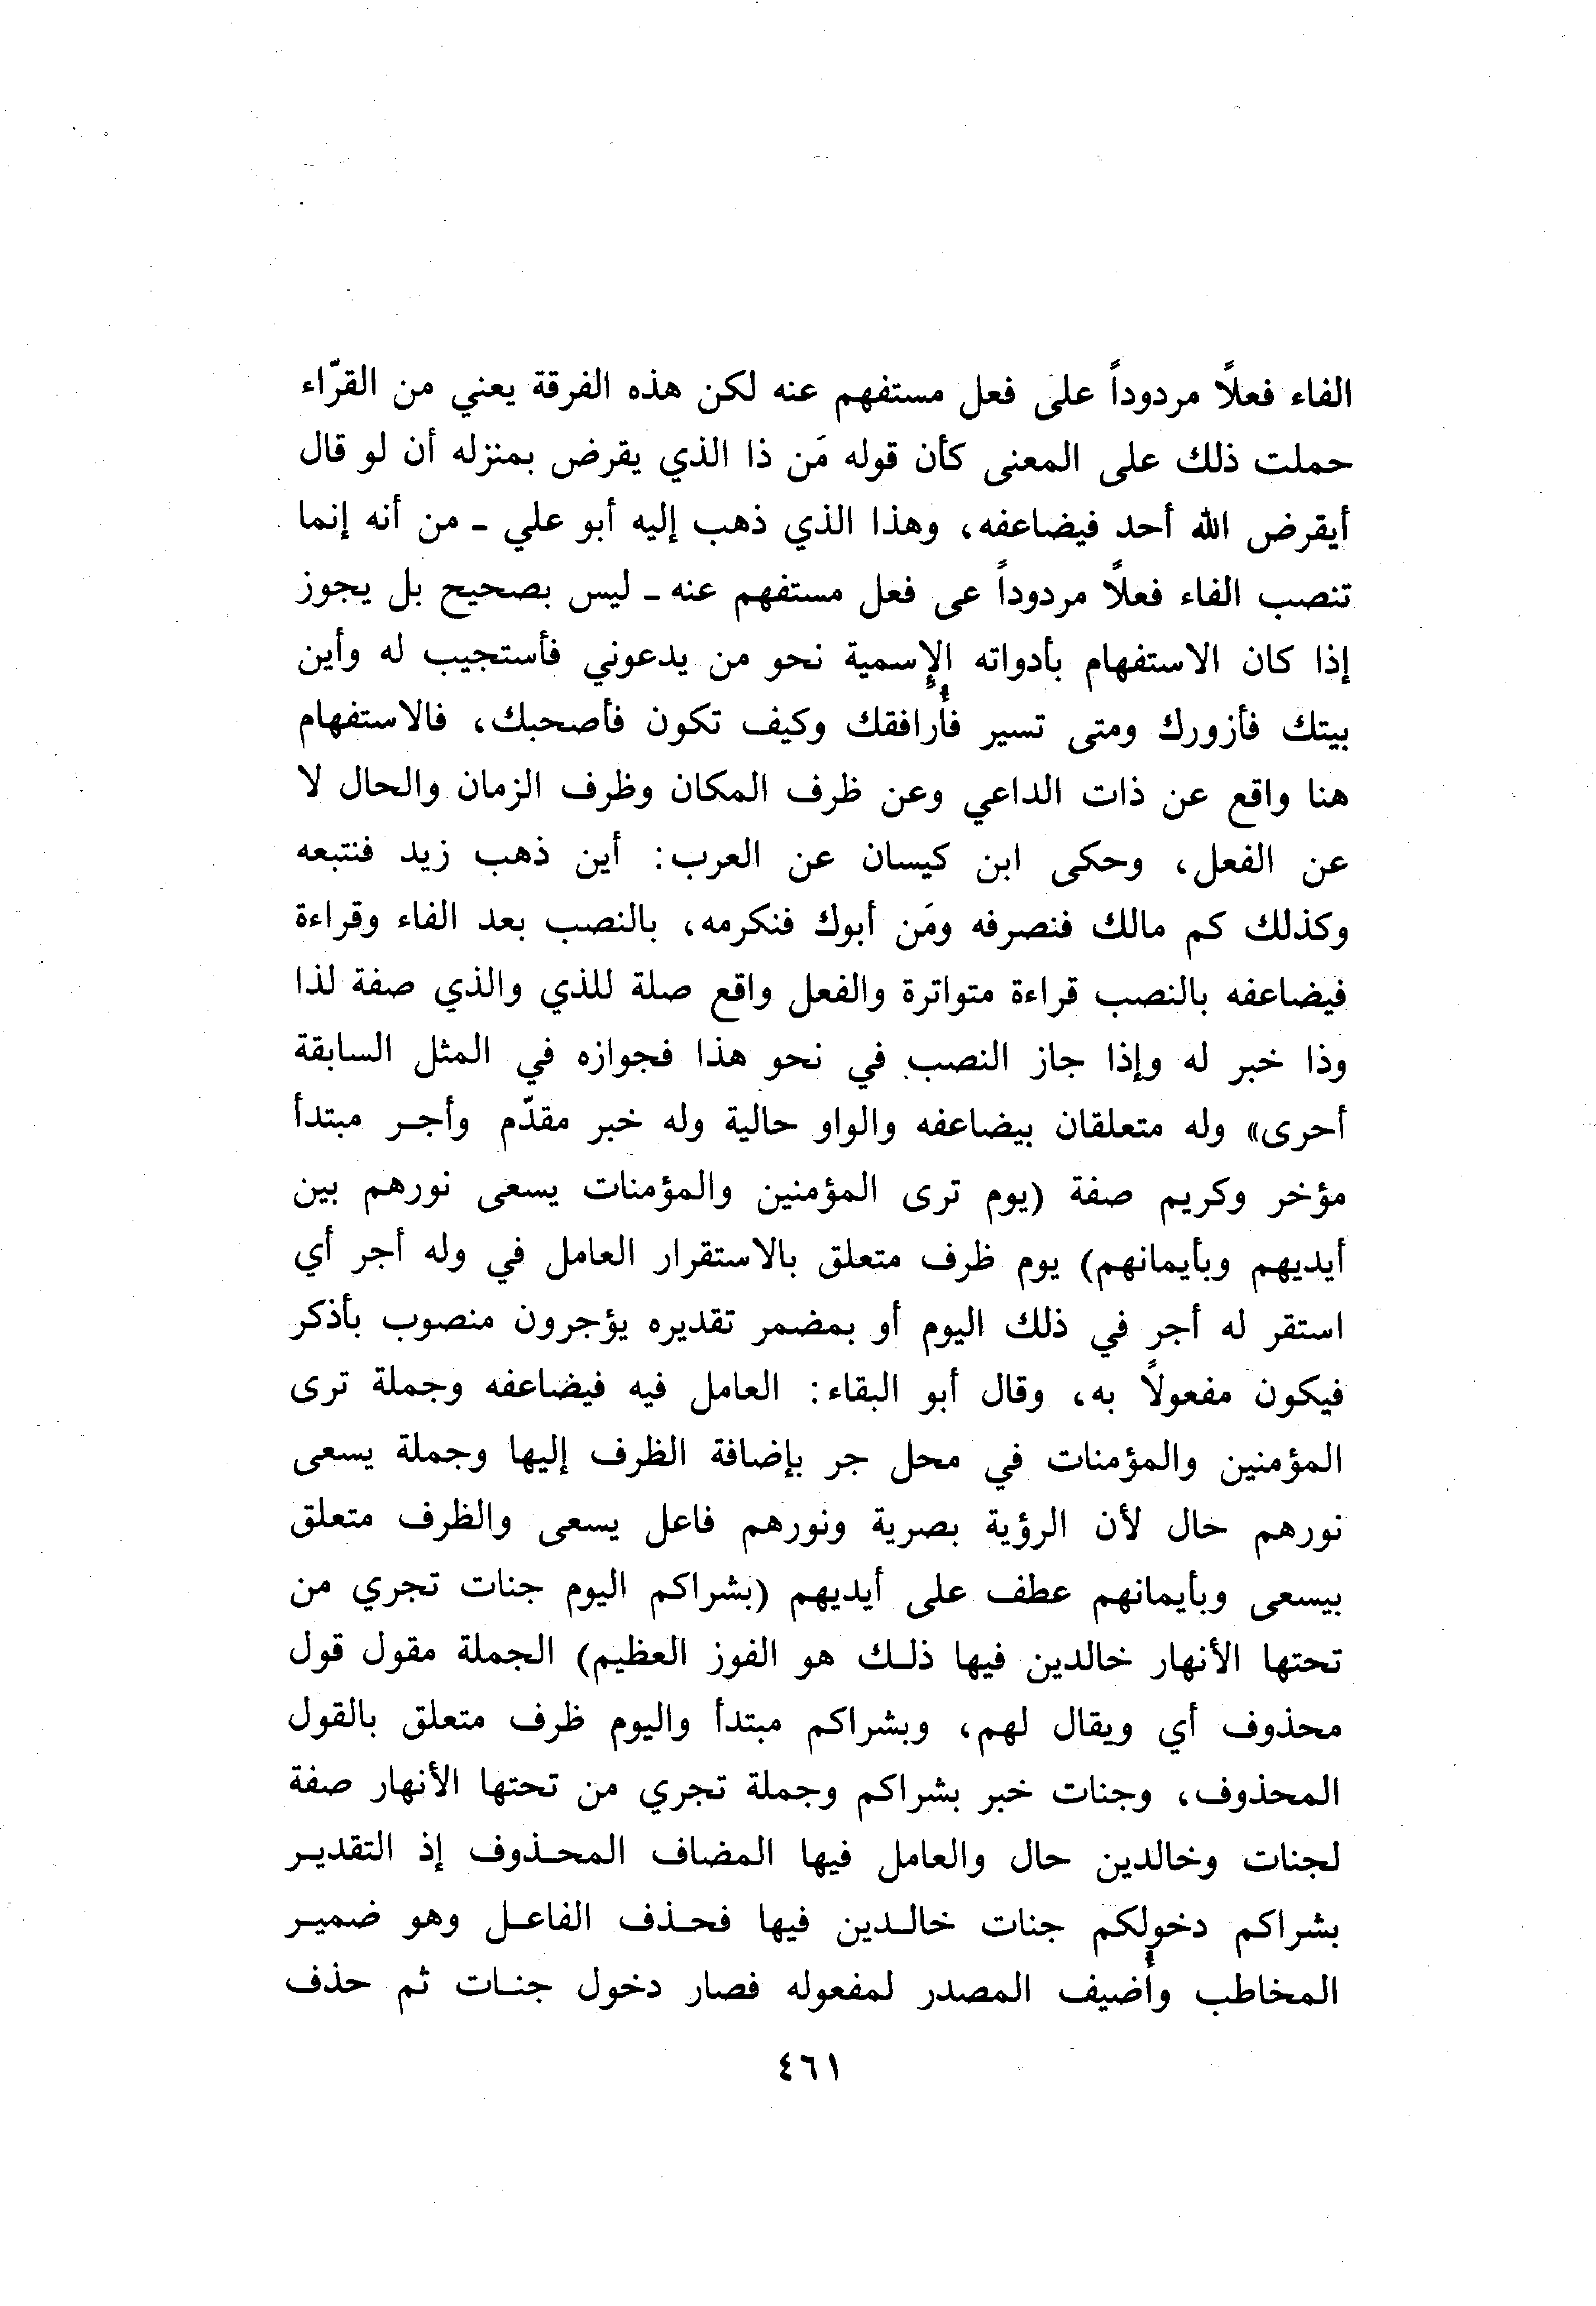 الفاء فعلًا مردوداً على فعل مستفهم عنه لكن هذه الفرقة يعني من القرّاء
حملت ذلك على المعنى كأن قوله مَن ذا الذي يقرض بمنزله أن لو قال
أيقرض الله أحد فيضاعفه، وهذا الذي ذهب إليه أبو علي - من أنه إنما
تنصب الفاء فعلًا مردوداً عى فعل مستفهم عنه - ليس بصحيح بل يجوز
إذا كان الاستفهام بأدواته الإسمية نحو من يدعوني فأستجيب له وأين
بيتك فأزورك ومتى تسير فأُرافقك وكيف تكون فأصحبك، فالاستفهام
هنا واقع عن ذات الداعي وعن ظرف المكان وظرف الزمان والحال لا
عن الفعل، وحكى ابن كيسان عن العرب: أين ذهب زيد فنتبعه
وكذلك كم مالك فنصرفه ومَن أبوك فنكرمه، بالنصب بعد الفاء وقراءة
فيضاعفه بالنصب قراءة متواترة والفعل واقع صلة للذي والذي صفة لذا
وذا خبر له وإذا جاز النصب في نحو هذا فجوازه في المثل السابقة
أحرى» وله متعلقان بيضاعفه والواو حالية وله خبر مقدّم وأجر مبتدأ
مؤخر وكريم صفة (يوم ترى المؤمنين والمؤمنات يسعى نورهم بين
أيديهم وبأيمانهم) يوم ظرف متعلق بالاستقرار العامل في وله أجر أي
استقر له أجر في ذلك اليوم أو بمضمر تقديره يؤجرون منصوب بأذكر
فيكون مفعولًا به، وقال أبو البقاء: العامل فيه فيضاعفه وجملة ترى
المؤمنين والمؤمنات في محل جر بإضافة الظرف إليها وجملة يسعى
نورهم حال لأن الرؤية بصرية ونورهم فاعل يسعى والظرف متعلق
بيسعى وبأيمانهم عطف على أيديهم (بشراكم اليوم جنات تجري من
تحتها الأنهار خالدين فيها ذلك هو الفوز العظيم) الجملة مقول قول
محذوف أي ويقال لهم، وبشراكم مبتدأ واليوم ظرف متعلق بالقول
المحذوف، وجنات خبر بشراكم وجملة تجري من تحتها الأنهار صفة
لجنات وخالدين حال والعامل فيها المضاف المحذوف إذ التقدير
بشراكم دخولكم جنات خالدين فيها فحذف الفاعل وهو ضمير
المخاطب وأُضيف المصدر لمفعوله فصار دخول جنات ثم حذف
٤٦١